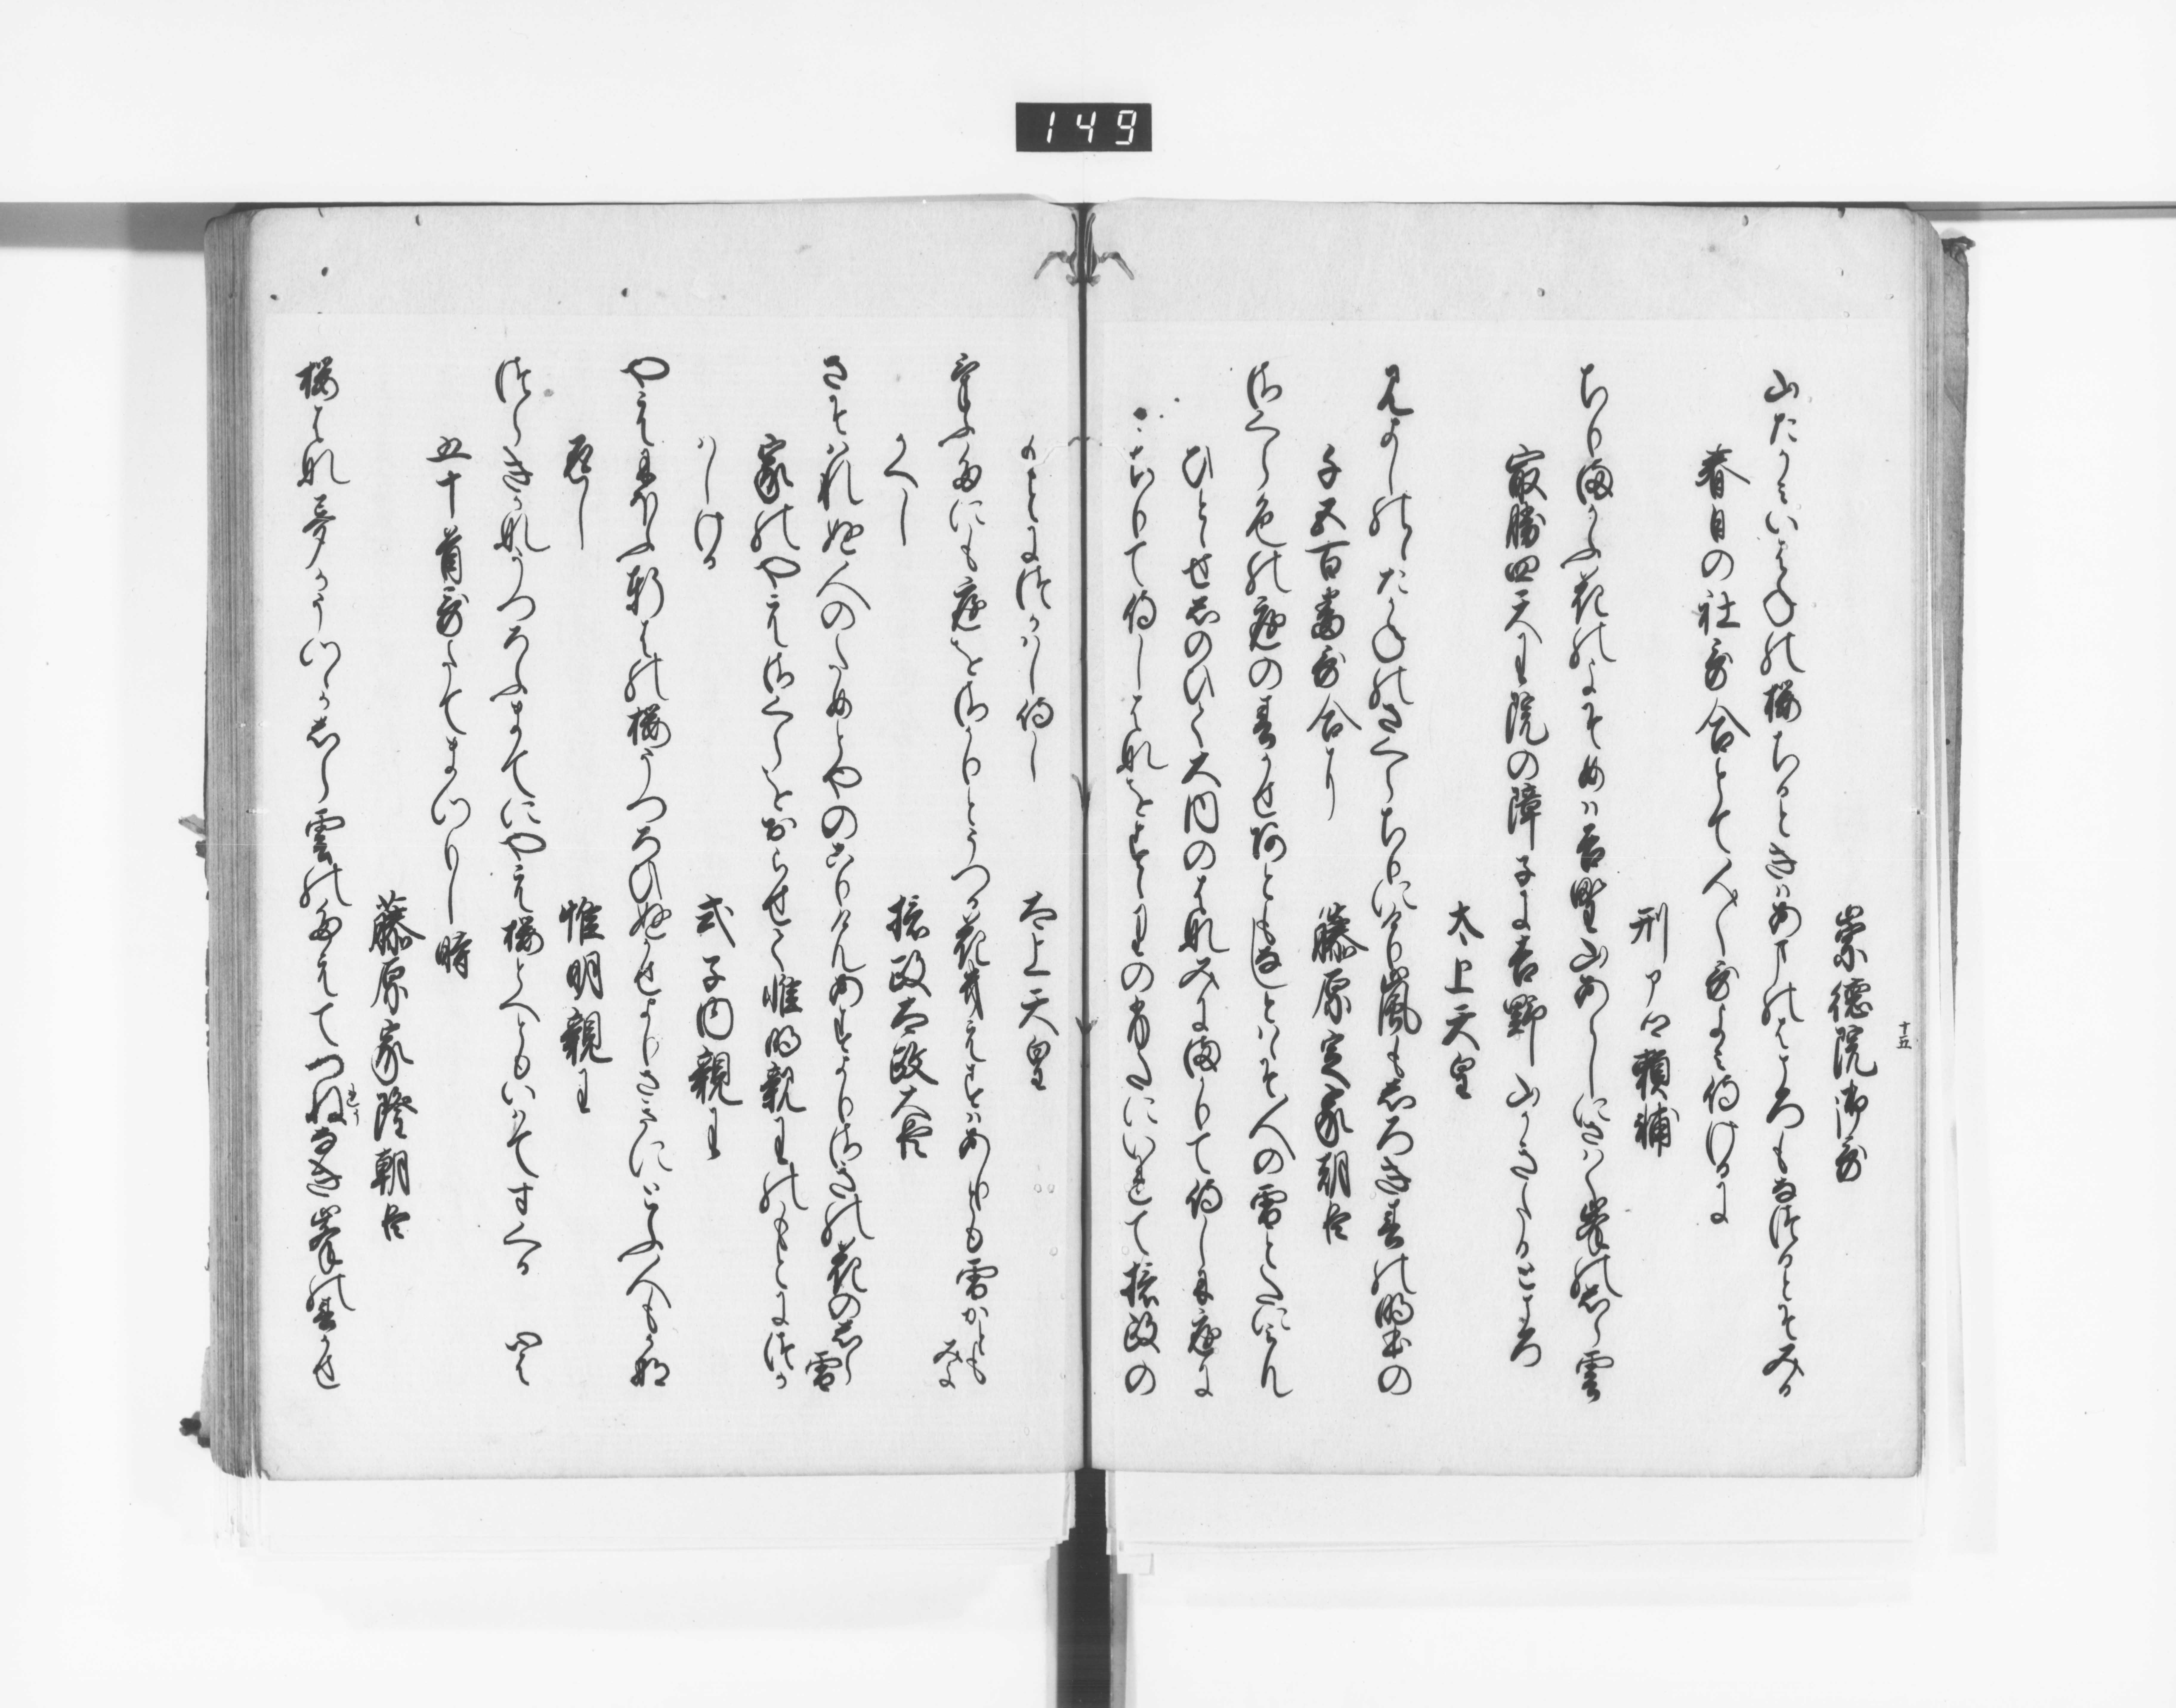 149
十五
崇徳院御哥
山たかみいはねの桜ちるときはあまのはころもなつるとそみる
春日の社哥合とて人〱哥よみ侍けるに
刑部卿頼輔
ちりまかふ花のよそめは吉野山あらしにさはく峯のしら雲
最勝四天王院の障子に吉野山かきたるところ
太上天皇
みよしのゝたかねのさくらちりにけり嵐もしろき春の明本の
千五百番哥合に
藤原定家朝臣
さくら色の庭の春かせあともなしとはゝそ人の雪とたにみん
ひとゝせしのひて大内のはなみにまかりて侍しに庭に
ちりて侍しはなをすゝりのふたにいれて摂政の
もとにつかはし侍し
太上天皇
けふたにも庭をさかりとうつる花きえすはありとも雪かとも
みよ
かへし
摂政太政大臣
さそはれぬ人のためとやのこりけんあすよりさきの花のしら
雪
家のやへさくらをおらせて惟明親王のもとにつか
はしける
式子内親王
やへにほふ軒はの桜うつろひぬかせよりさきにとふ人もかな
返し
惟明親王
つらきかなうつろふまてにやへ桜とへともいはてすくる 心は
五十首哥たてまつりし時
藤原家隆朝臣
桜はな夢かうつゝかしら雲のたえてつねなき峯の春かせ